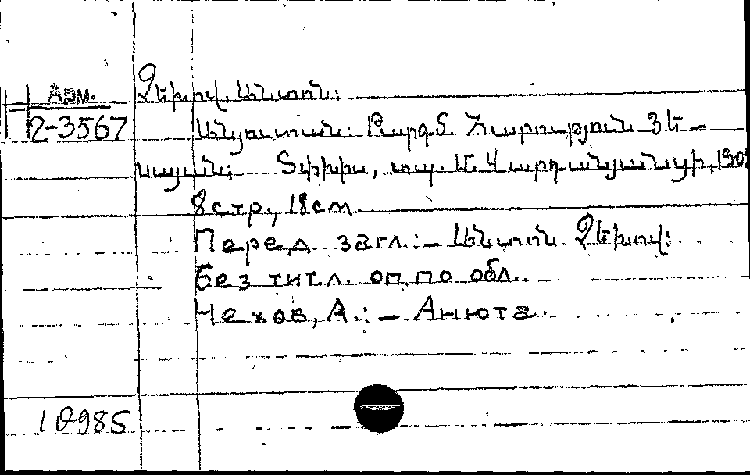 Арм.
2-3567
Չեխով, Անտոն:
Անյուտան: Թարգ. Տ. Հարություն
Տփխիս, տպ. Մ. Վարդանյանցի, 190
8 стр., 18 см.
Перед загл.:- Անտոն Չեխով:
Без тит.л. оп. по обл.
Чехов, А.:- Анюта
10985